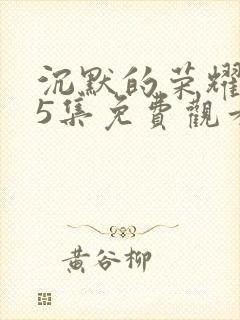 沉默的荣耀
5集免費觀
黄谷柳